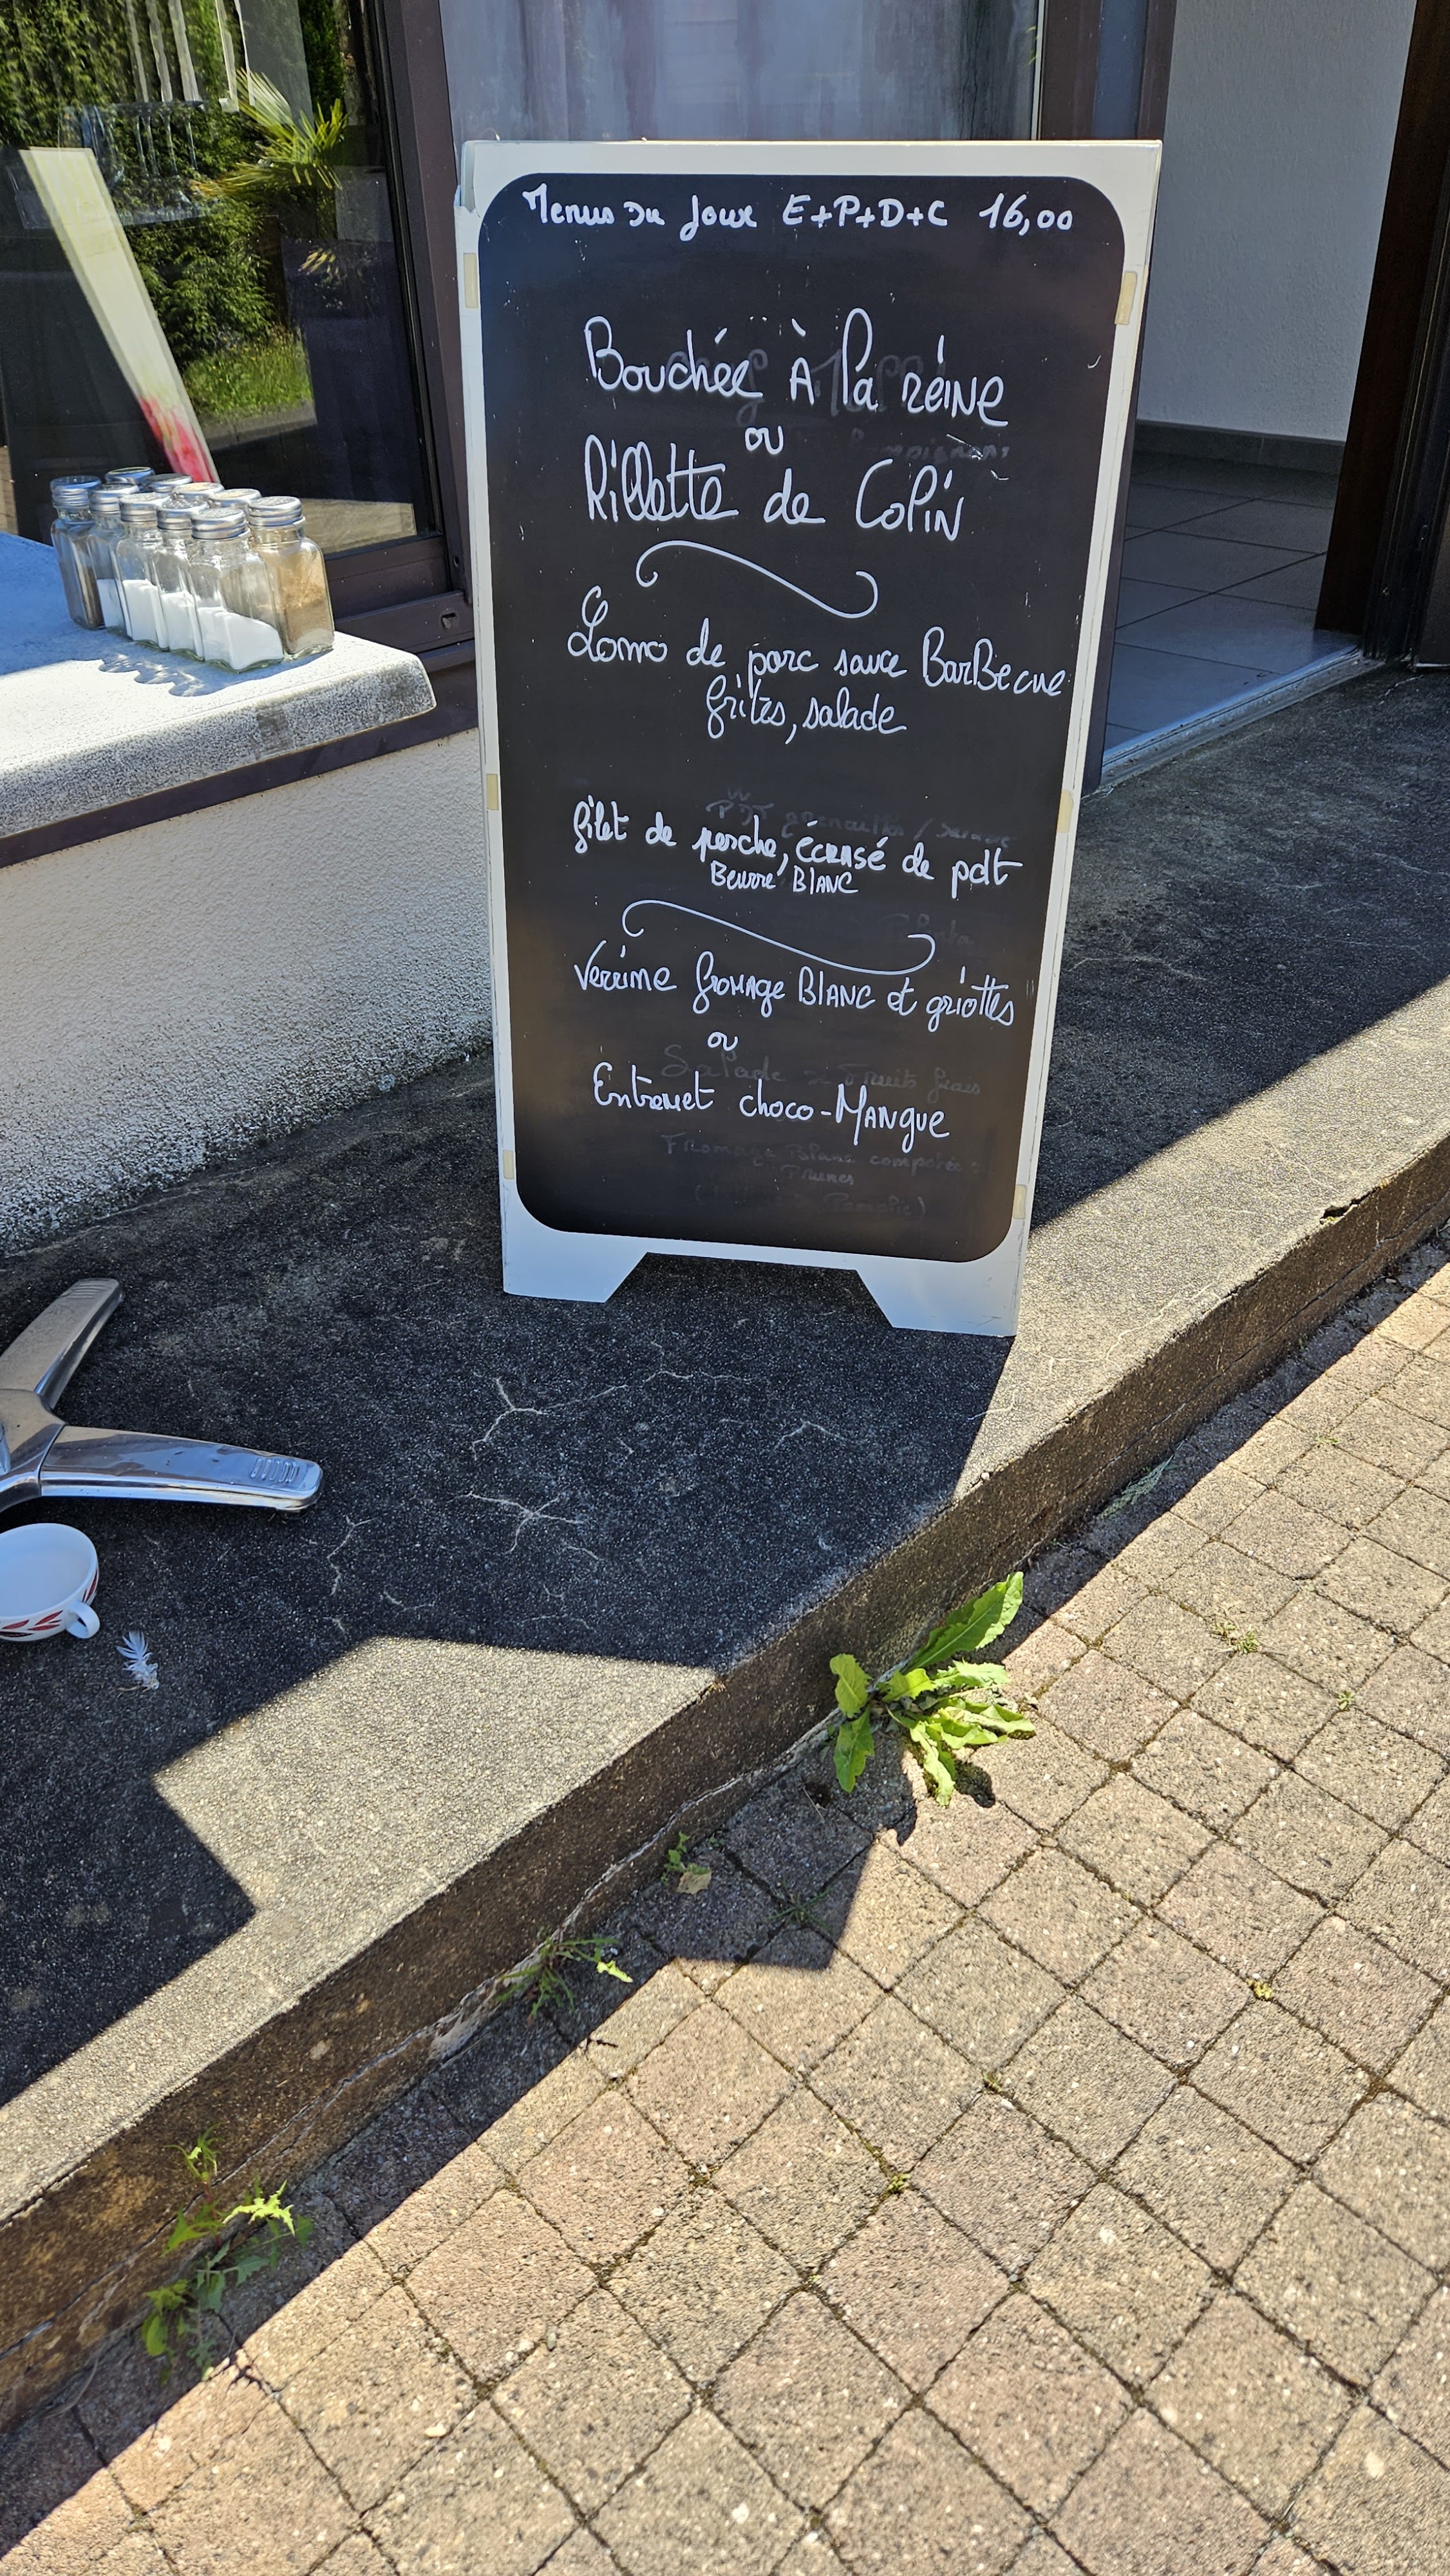 Menus Du Jour E+P+D+C 16,00
Bouchée À la reine
ou
Rillette de Colin
Lomo de porc sauce BarBecue
frites, salade
filet de perche, écrasé de pdt
Beurre BLANC
Verrine fromage BLANC et griottes
ou
Salade Fruits frais
Entremet choco-MANgue
Fromage Blanc compotée
Prunes